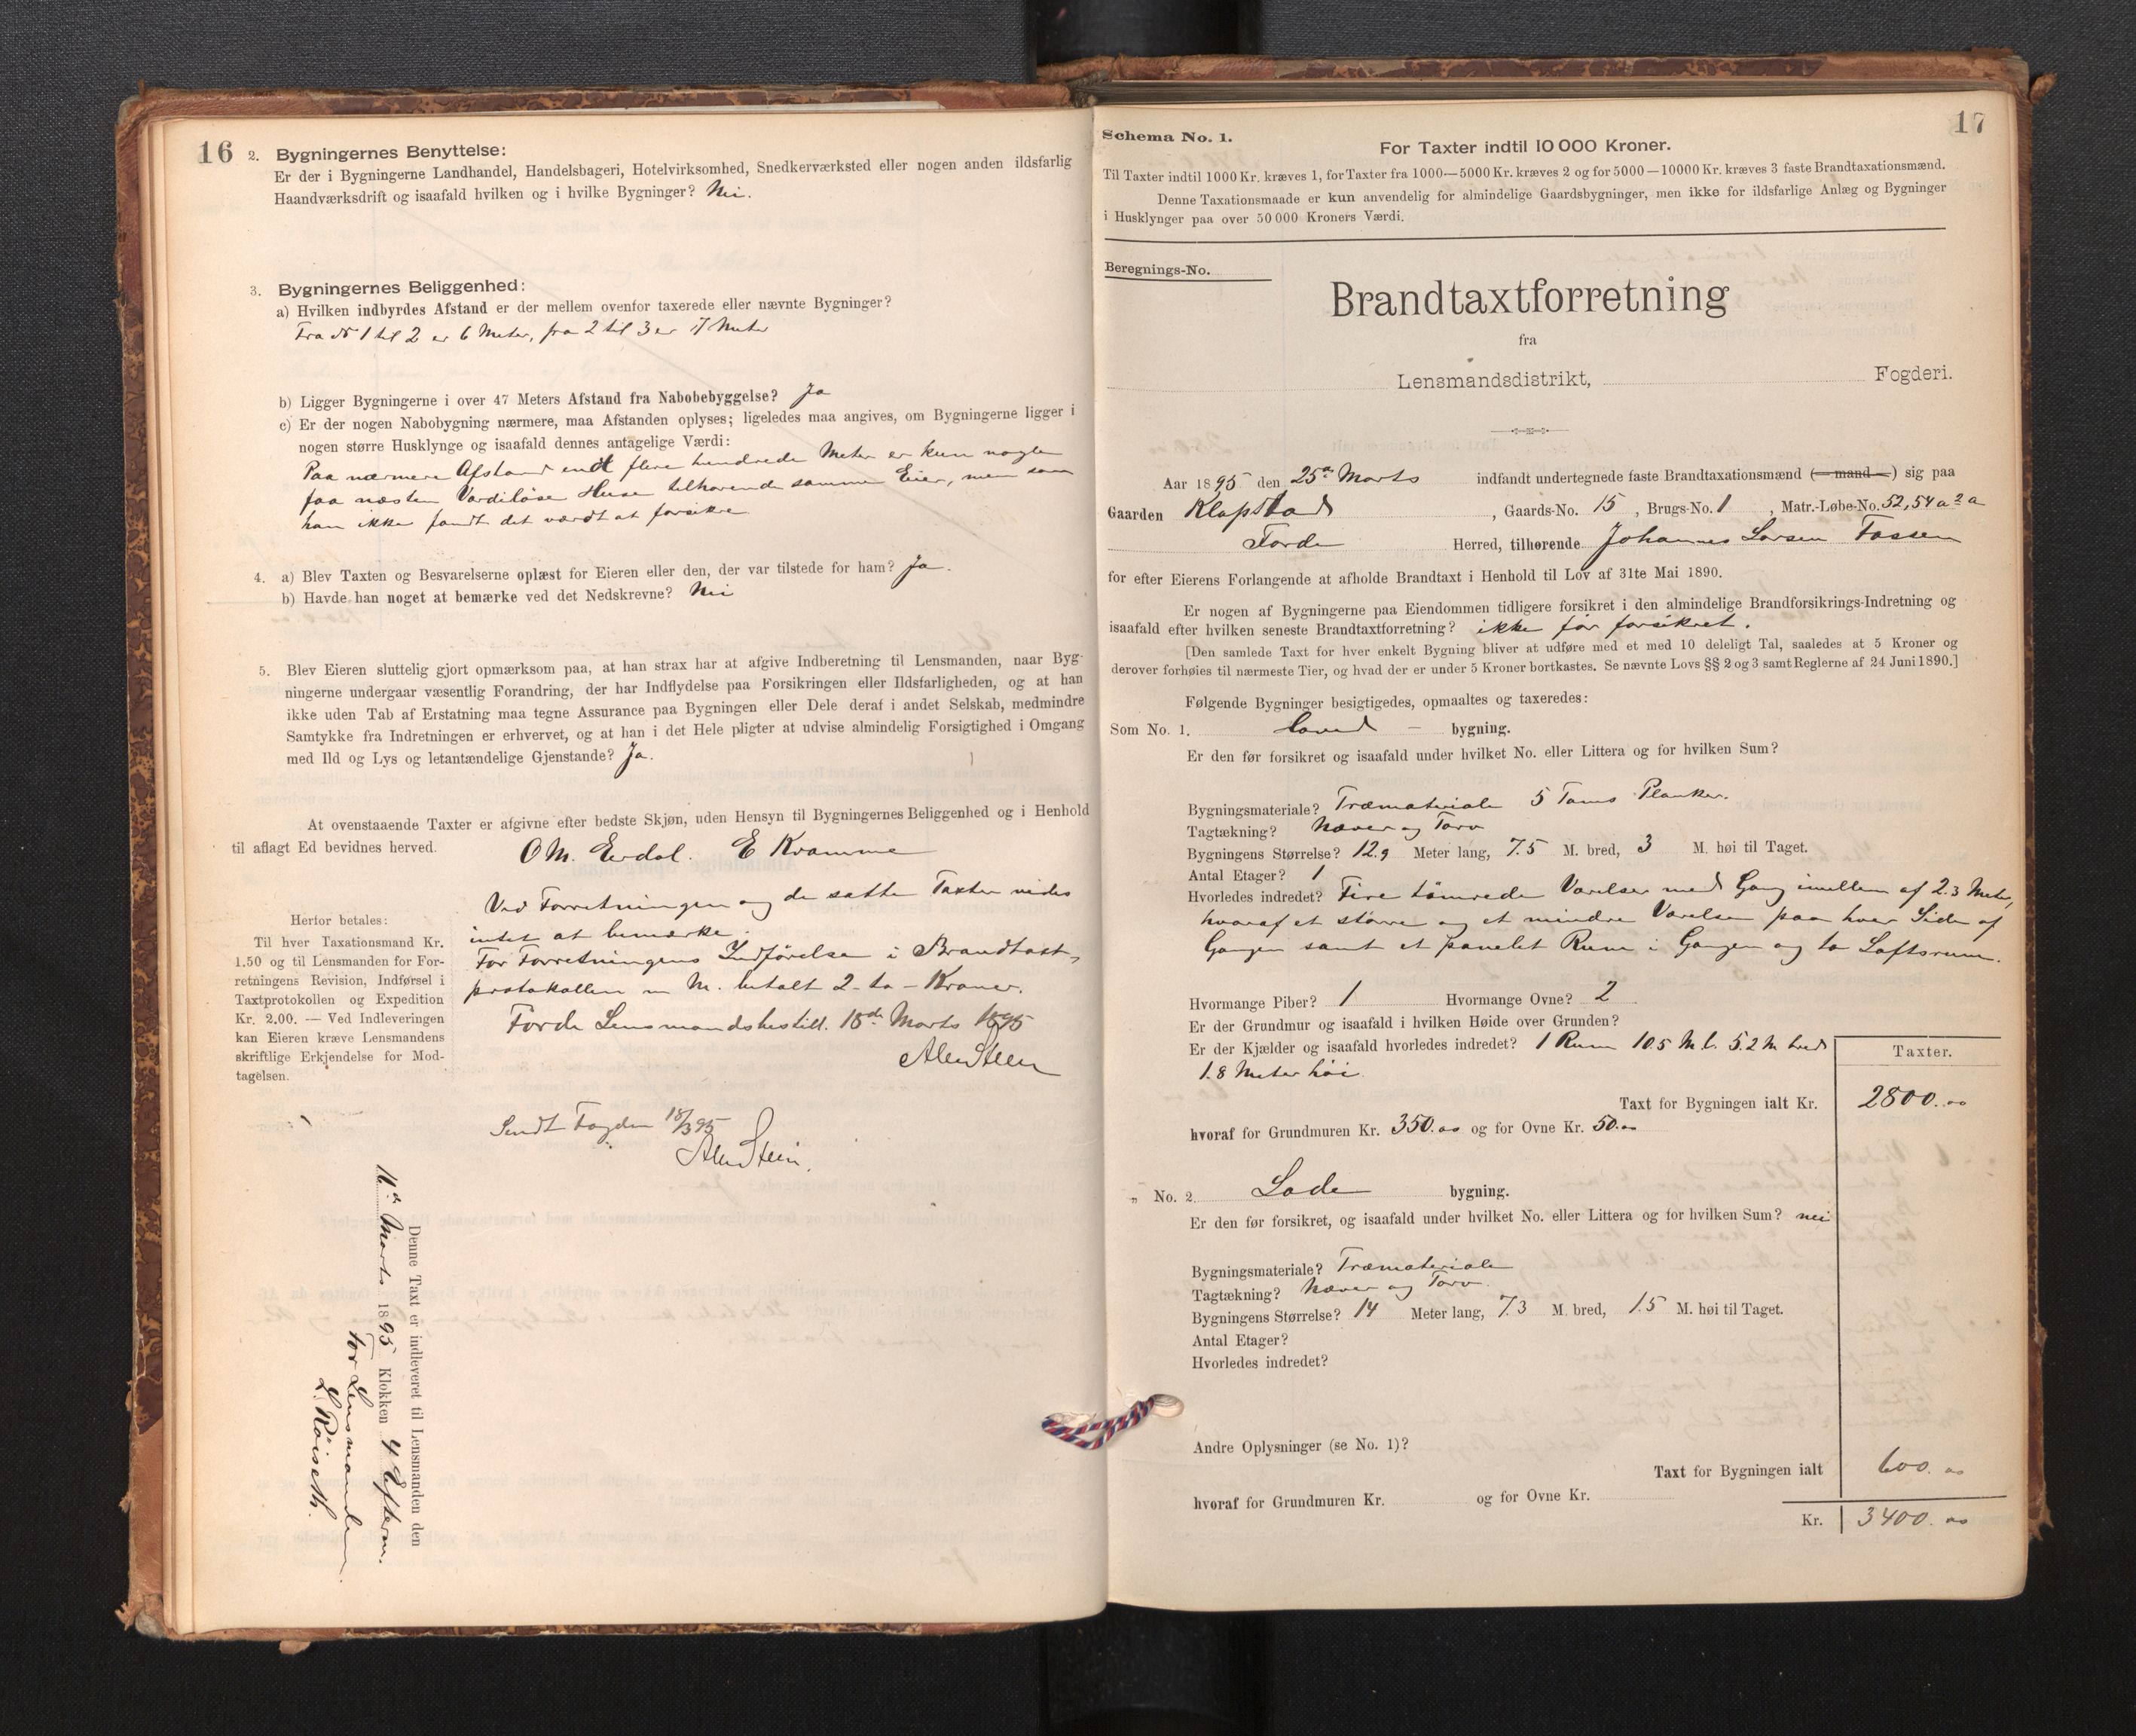 16
2. Bygningernes Benyttelse:
Er der i Bygningerne Landhandel, Handelsbageri, Hotelvirksomhed, Snedkerværksted eller nogen anden ildsfarlig
Haandværksdrift og isaafald hvilken og i hvilke Bygninger? Nei.
3. Bygningernes Beliggenhed:
a) Hvilken indbyrdes Afstand er der mellem ovenfor taxerede eller nævnte Bygninger?
Fra No 1 til 2 er 6 Meter, fra 2 til 3 er 17 Meter
b) Ligger Bygningerne i over 47 Meters Afstand fra Nabobebyggelse? Ja
c) Er der nogen Nabobygning nærmere, maa Afstanden oplyses; ligeledes maa angives, om Bygningerne ligger i
nogen større Husklynge og isaafald dennes antagelige Værdi:
Paa nærmere Afstand end flere hundrede Meter er kun nogle
faa næsten Værdiløse Huse tilhørende samme Eier, men som
han ikke fandt det værdt at forsikre
4. a) Blev Taxten og Besvarelserne oplæst for Eieren eller den, der var tilstede for ham? Ja.
b) Havde han noget at bemærke ved det Nedskrevne? Nei
5. Blev Eieren sluttelig gjort opmærksom paa, at han strax har at afgive Indberetning til Lensmanden, naar Byg-
ningerne undergaar væsentlig Forandring, der har Indflydelse paa Forsikringen eller Ildsfarligheden, og at han
ikke uden Tab af Erstatning maa tegne Assurance paa Bygningen eller Dele deraf i andet Selskab, medmindre
Samtykke fra Indretningen er erhvervet, og at han i det Hele pligter at udvise almindelig Forsigtighed i Omgang
med Ild og Lys og letantændelige Gjenstande? Ja.
At ovenstaaende Taxter er afgivne efter bedste Skjøn, uden Hensyn til Bygningernes Beliggenhed og i Henhold
til aflagt Ed bevidnes herved.
O M. Eerdal. E Kramme
Ved Forretningen og de satte Taxter vides
intet at bemærke.
For Forretningens Indførelse i Brandtaxt-
protokollen er M. betalt 2 - to - Kroner.
Førde Lensmandsbestill. 18de Marts 1895
Alex Steen
Herfor betales:
Til hver Taxationsmand Kr.
1.50 og til Lensmanden for For-
retningens Revision, Indførsel i
Taxtprotokollen og Expedition
Kr. 2.00. — Ved Indleveringen
kan Eieren kræve Lensmandens
skriftlige Erkjendelse for Mod-
tagelsen.
Sendt Fogden 18/3 95
Alex Steen.
Denne Taxt er indleveret til Lensmanden den
11te Marts 1895 Klokken 4 Efterm.
For Lensmanden
L. Röiseth.
17
Schema No. 1.
For Taxter indtil 10 000 Kroner.
Til Taxter indtil 1000 Kr. kræves 1, for Taxter fra 1000—5000 Kr. kræves 2 og for 5000—10000 Kr. kræves 3 faste Brandtaxationsmænd.
Denne Taxationsmaade er kun anvendelig for almindelige Gaardsbygninger, men ikke for ildsfarlige Anlæg og Bygninger
i Husklynger paa over 50 000 Kroners Værdi.
Beregnings-No.
Brandtaxtforretning
fra
Lensmandsdistrikt, Fogderi.
Aar 1895 den 25de Marts indfandt undertegnede faste Brandtaxationsmænd (— mand —) sig paa
Gaarden Klopstad, Gaards-No. 15, Brugs-No. 1, Matr.-Løbe-No. 52, 54 a 2 a
Førde Herred, tilhørende Johannes Larsen Fossen
for efter Eierens Forlangende at afholde Brandtaxt i Henhold til Lov af 31te Mai 1890.
Er nogen af Bygningerne paa Eiendommen tidligere forsikret i den almindelige Brandforsikrings-Indretning og
isaafald efter hvilken seneste Brandtaxtforretning? ikke før forsikret.
[Den samlede Taxt for hver enkelt Bygning bliver at udføre med et med 10 deleligt Tal, saaledes at 5 Kroner og
derover forhøies til nærmeste Tier, og hvad der er under 5 Kroner bortkastes. Se nævnte Lovs §§ 2 og 3 samt Reglerne af 24 Juni 1890.]
Følgende Bygninger besigtigedes, opmaaltes og taxeredes:
Som No. 1. — bygning.
Er den før forsikret og isaafald under hvilket No. eller Littera og for hvilken Sum?
Bygningsmateriale? Træmateriale 5 Toms Planker.
Tagtækning? Næver og Torv
Bygningens Størrelse? 12.9 Meter lang, 7.5 M. bred, 3 M. høi til Taget.
Antal Etager? 1
Hvorledes indredet? Fire tömrede Værelser med Gang imellem af 2.3 Meter,
hvoraf et større og et mindre Værelse paa hver Side af
Gangen samt et panelet Rum i Gangen og to Loftsrum.
Hvormange Piber? 1 Hvormange Ovne? 2
Er der Grundmur og isaafald i hvilken Høide over Grunden?
Er der Kjælder og isaafald hvorledes indredet? 1 Rum 10.5 M. l. 5.2 M bred
1.8 Meter høi.
Taxter.
Taxt for Bygningen ialt Kr. 2800.00
hvoraf for Grundmuren Kr. 350.00 og for Ovne Kr. 50.00
„ No. 2. Lade bygning.
Er den før forsikret, og isaafald under hvilket No. eller Littera og for hvilken Sum? nei
Bygningsmateriale? Træmateriale
Tagtækning? Næver og Torv.
Bygningens Størrelse? 14 Meter lang, 7.3 M. bred, 1.5 M. høi til Taget.
Antal Etager?
Hvorledes indredet?
Andre Oplysninger (se No. 1)?
Taxt for Bygningen ialt 600.00
hvoraf for Grundmuren Kr. og for Ovne Kr.
Kr. 3400.00